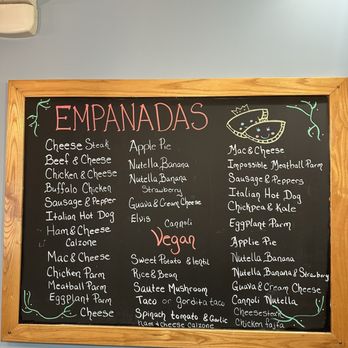 EMPANADAS
Cheese Steak
Beef & Cheese
Chicken & Cheese
Buffalo Chicken
Sausage & Pepper
Italian Hot Dog
Ham & Cheese
Calzone
Mac & Cheese
Chicken Parm
Meatball Parm
Eggplant Parm
Cheese
Apple Pie
Nutella, Banana
Nutella, Banana
Strawberry
Guava & Cream Cheese
Elvis
Cannoli
Vegan
Sweet Potato & lentil
Rice & Bean
Sautee Mushroom
Taco or gordita taco
Spinach tomato & Garlic
Ham & cheese calzone
Mac & Cheese
Impossible Meatball Parm
Sausage & Peppers
Italian Hot Dog
Chickpea & Kale
Eggplant Parm
Applie Pie
Nutella, Banana
Nutella, Banana & Strawberry
Guava & Cream Cheese
Cannoli Nutella
Cheesesteak
Chicken fajita